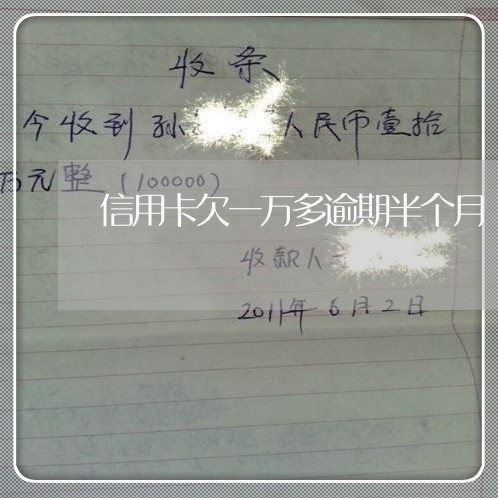 收条
今收到孙 人民币壹拾
万元整(100000)
信用卡欠一万多逾期半个月
收款人
2011年6月2日